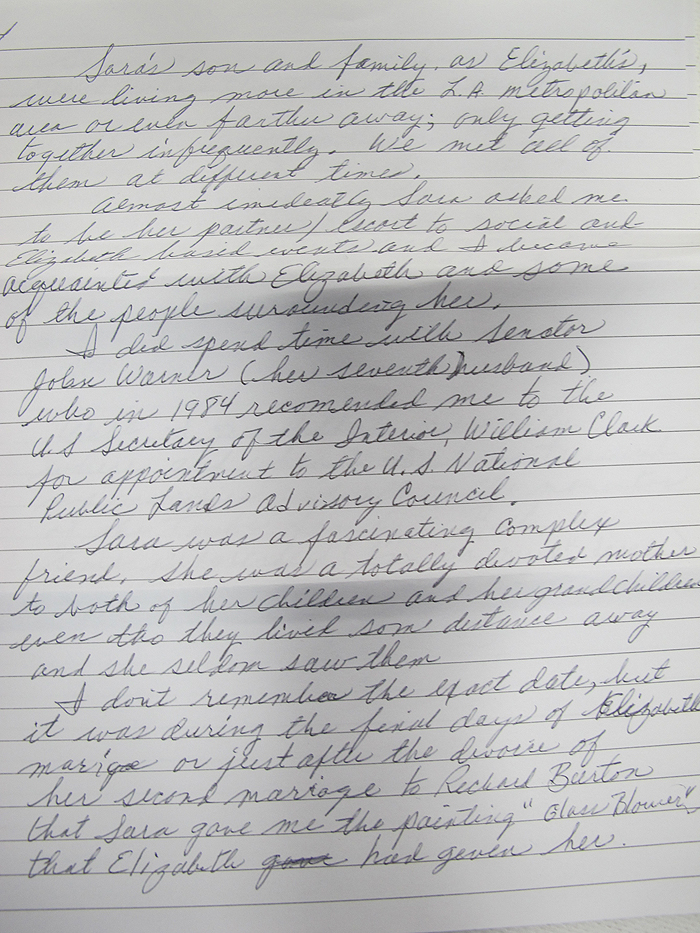 Sara's son and family, as Elizabeth's,
were living more in the L.A. metropolitan
area or even farther away; only getting
together infrequently. We met all of
them at different times.
Almost imedieatly Sara asked me
to be her partner/escort to social and
Elizabeth based events and I became
acquainted with Elizabeth and some
of the people surrounding her.
I did spend time with Senator
John Warner (her seventh husband)
who in 1984 recomended me to the
U.S Secretary of the Interior, William Clark
for appointment to the U.S. National
Public Lands Advisory Council.
Sara was a fascinating complex
friend. She was a totally devoted mother
to both of her children and her grandchildren
even tho they lived som distance away
and she seldom saw them
I don't remember the exact date, but
it was during the final days of Elizabeth
marige or just after the divorce of
her second marriage to Richard Burton
that Sara gave me the painting "Glass Blower"
that Elizabeth gave had given her.